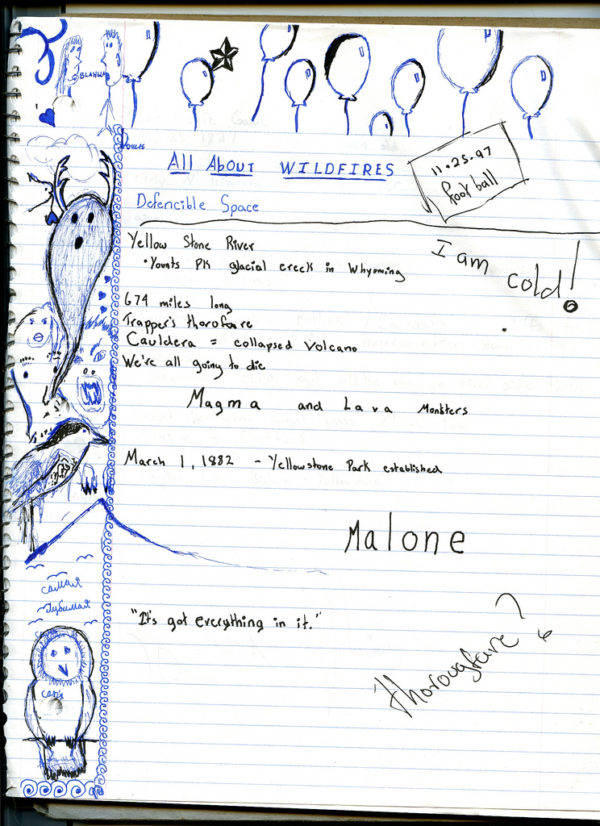 BLAHHH
All About WILDFIRES
11.25.97
foot ball
Defencible Space
I am cold!
Yellow Stone River
• Younts PK glacial creek in Whyoming
674 miles long
Trapper's thorofare
Cauldera = collapsed volcano
We're all going to die
Magma and Lava Monsters
March 1, 1882 - Yellowstone Park established
Malone
самая
любимая
"It's got everything in it."
thoroughfare?